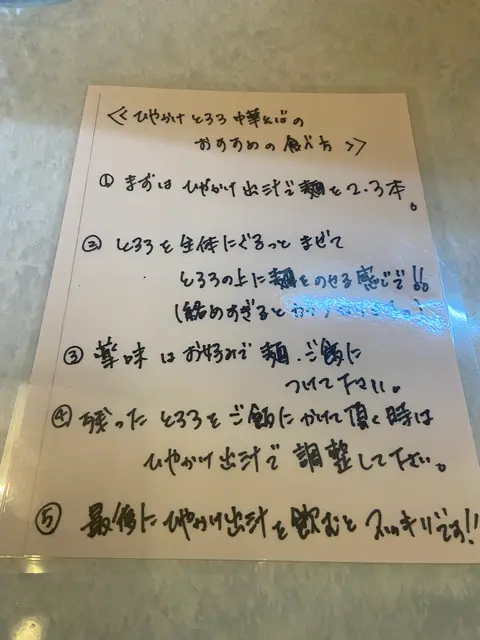 ≪ひやかけ とろろ 中華そばの
おすすめの 食べ方≫
① まずは ひやかけ 出汁で 麺を 2.3本。
② とろろを 全体にぐるっと まぜて
とろろの上に 麺をのせる 感じで!!
(絡めすぎると
③ 薬味は お好みで 麺、ご飯に
つけて下さい。
④ 残った とろろを ご飯に かけて 頂く時は
ひやかけ 出汁で 調整して下さい。
⑤ 最後に ひやかけ 出汁を 飲むと スッキリです!!